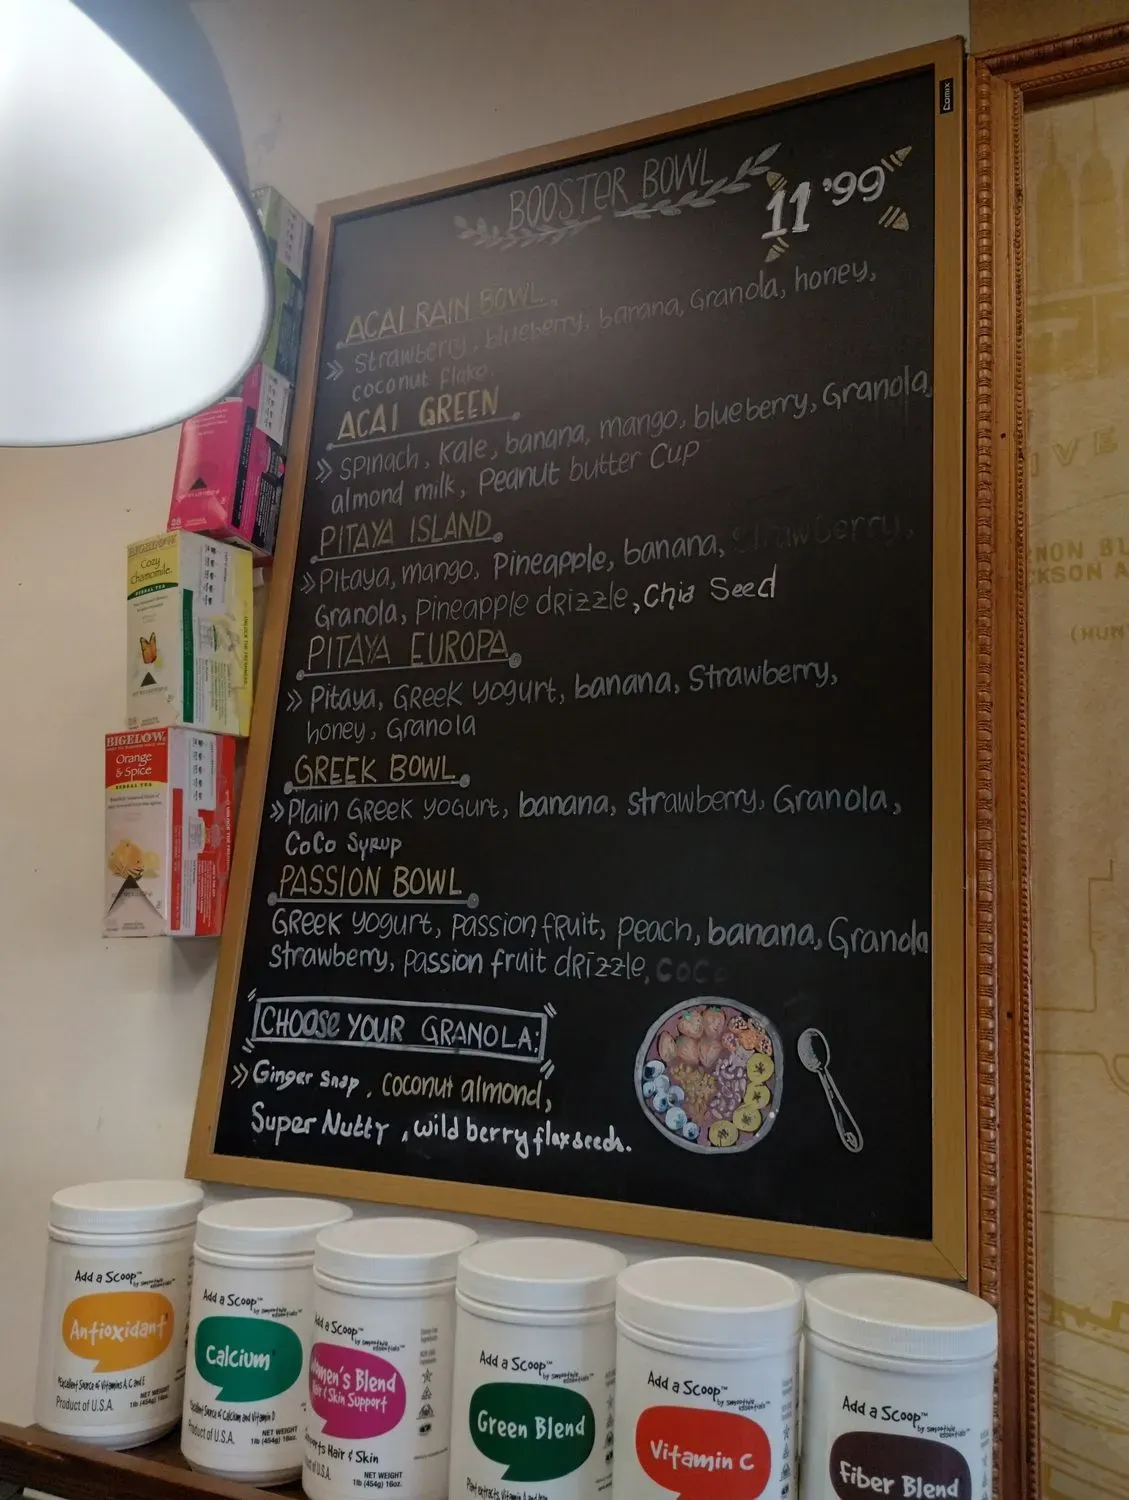 Comix
BOOSTER BOWL
11'99
ACAI RAIN BOWL
» Strawberry, blueberry, banana, Granola, honey,
coconut flake.
ACAI GREEN
» SPinach, Kale, banana, mango, blueberry, Granola,
almond milk, Peanut butter Cup
PITAYA ISLAND
» Pitaya, mango, Pineapple, banana, Strawberry,
Granola, Pineapple drizzle, Chia Seed
PITAYA EUROPA
» Pitaya, Greek yogurt, banana, Strawberry,
honey, Granola
GREEK BOWL
» Plain Greek yogurt, banana, strawberry, Granola,
CoCo Syrup
PASSION BOWL
Greek yogurt, Passion fruit, peach, banana, Granola
Strawberry, Passion fruit drizzle, COC
CHOOSE YOUR GRANOLA:
» Ginger Snap, Coconut almond,
Super Nutty, wild berry flaxseeds.
BIGELOW
Cozy
Chamomile
HERBAL TEA
BIGELOW
Orange
& Spice
HERBAL TEA
Add a Scoop™
by smoothie essentials™
Antioxidant
Excellent Source of Vitamins A, C and E
Product of U.S.A.
NET WEIGHT
1lb (454g) 16oz.
Add a Scoop™
by smoothie essentials™
Calcium
Excellent Source of Calcium and Vitamin D
Product of U.S.A.
NET WEIGHT
1lb (454g) 16oz.
Add a Scoop™
by smoothie essentials™
Women's Blend
Hair & Skin Support
Supports Hair & Skin
of U.S.A.
NET WEIGHT
1lb (454g) 16oz.
Add a Scoop™
by smoothie essentials™
Green Blend
Add a Scoop™
by smoothie essentials™
Vitamin C
Add a Scoop™
by smoothie essentials™
Fiber Blend
IVE
NON BL
CKSON A
(HUN